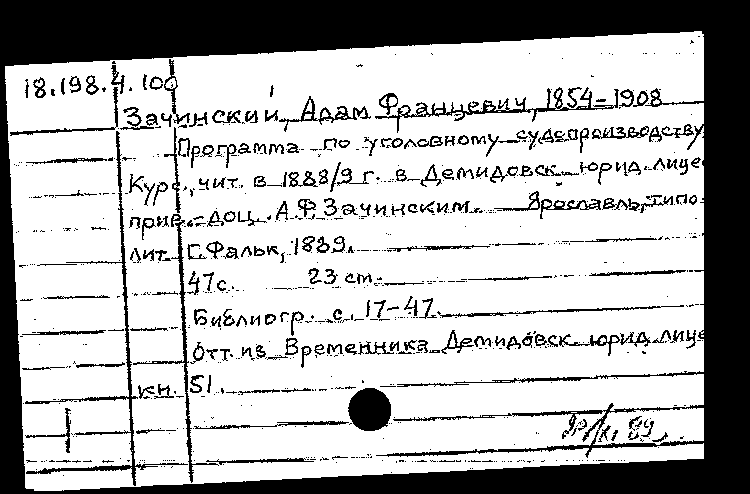 18.198.4.100
Зачинский, Адам Францевич, 1854-1908
Программа по уголовному судопроизводству.
Курс, чит. в 1888/9 г. в Демидовск. юрид. лице
прив.-доц. А.Ф. Зачинским. Ярославль, типо-
лит. Г. Фальк, 1889.
47 с. 23 см.
Библиогр. с. 17-47.
Отт. из Временника Демидовск. юрид. лице
кн. 51.
89